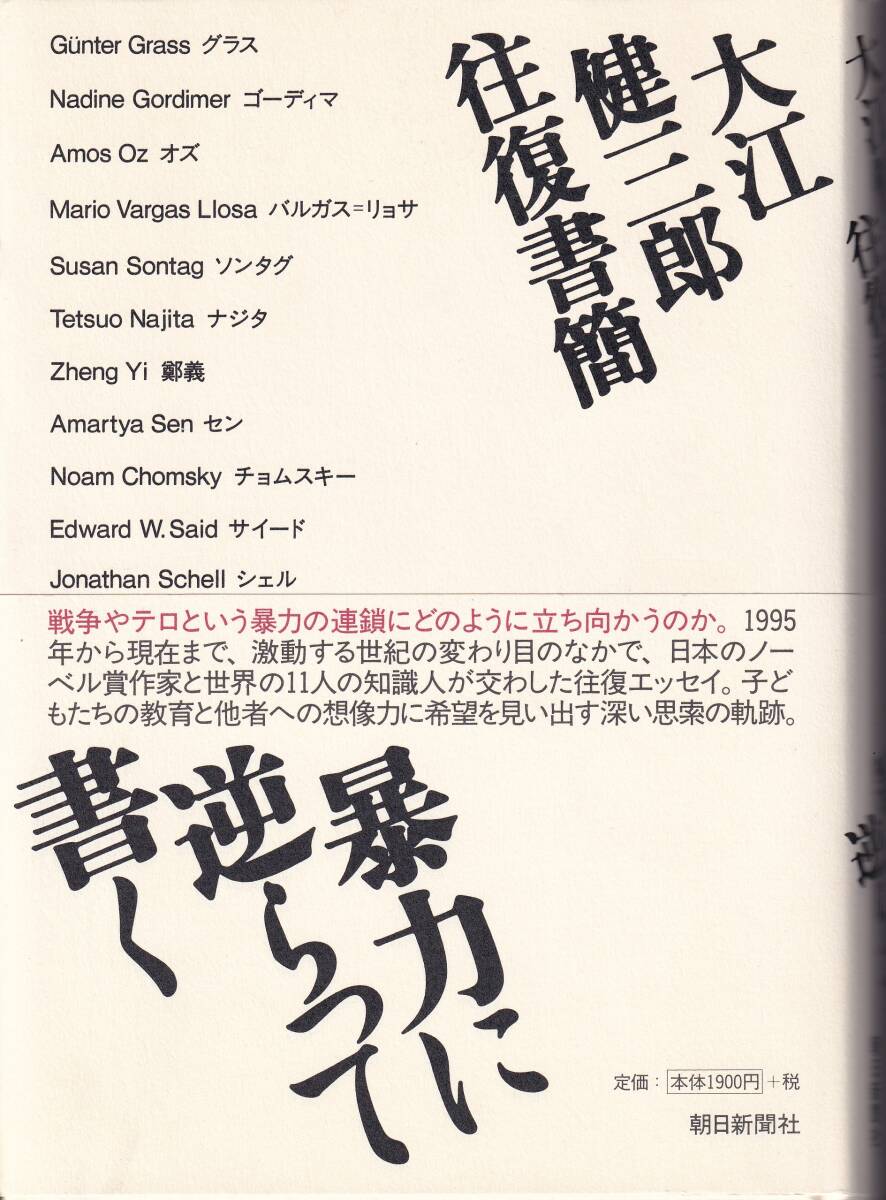 大江
健三郎
往復書簡
Günter Grass グラス
Nadine Gordimer ゴーディマ
Amos Oz オズ
Mario Vargas Llosa バルガス=リョサ
Susan Sontag ソンタグ
Tetsuo Najita ナジタ
Zheng Yi 鄭義
Amartya Sen セン
Noam Chomsky チョムスキー
Edward W. Said サイード
Jonathan Schell シェル
戦争やテロという暴力の連鎖にどのように立ち向かうのか。1995
年から現在まで、激動する世紀の変わり目のなかで、日本のノー
ベル賞作家と世界の11人の知識人が交わした往復エッセイ。子ど
もたちの教育と他者への想像力に希望を見い出す深い思索の軌跡。
暴力に
逆らって
書く
定価：本体1900円+税
朝日新聞社
大江
往
逆